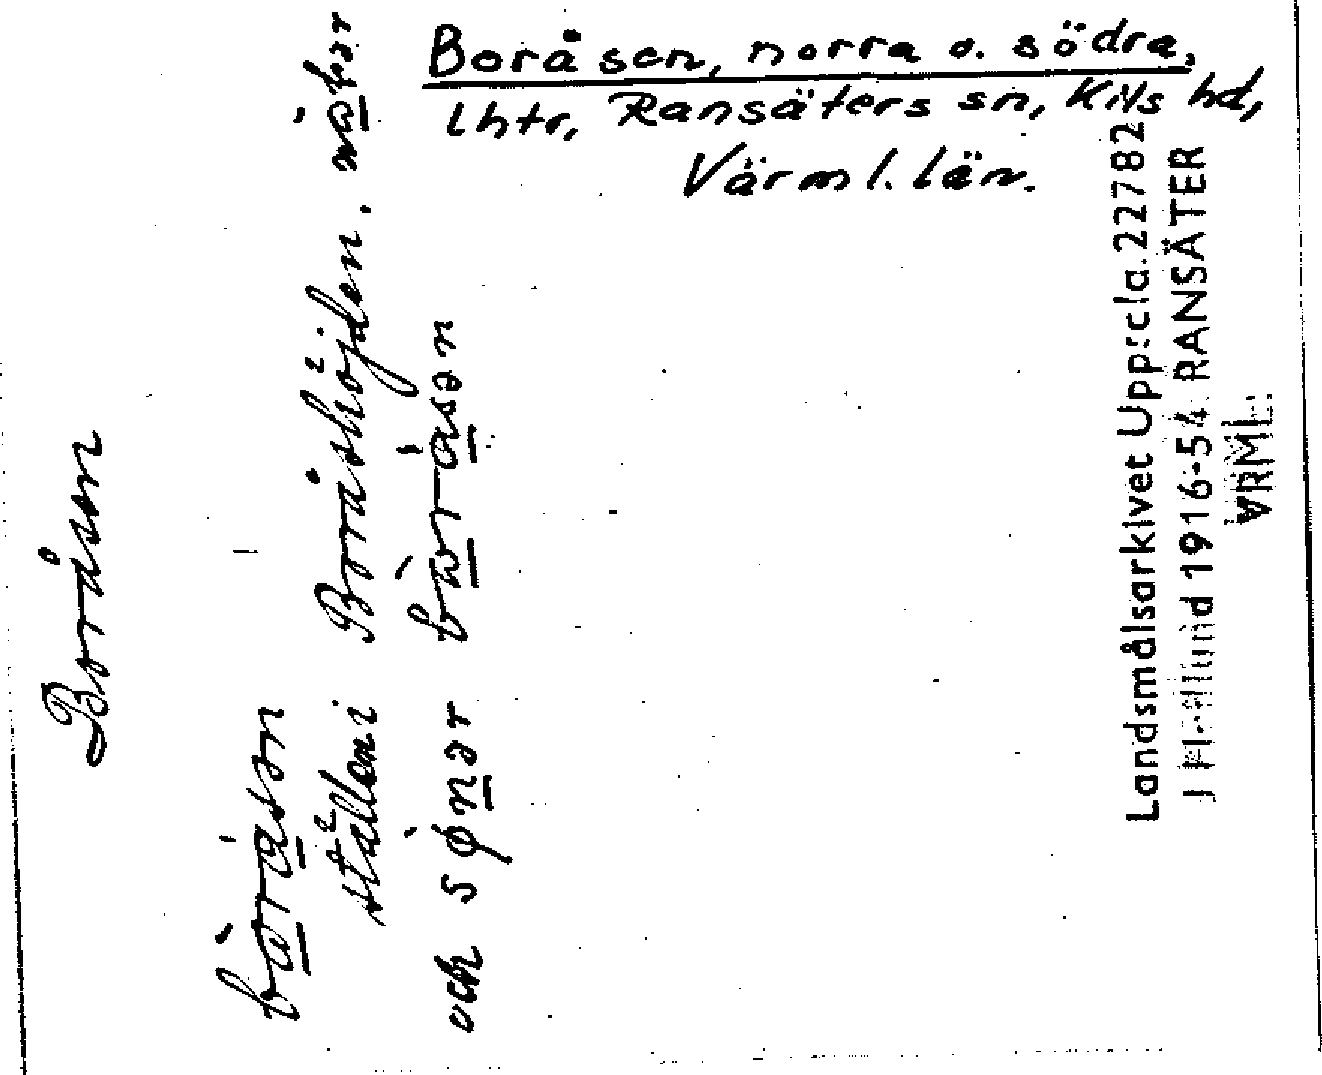 Boråsen, norra o. södra,
lhtr, Ransäters sn, Kils hd,
Värml. län.
Boråsen
bòråsən
ställen i Boråshöjden. når
och sǿnər bòråsən
Landsmålsarkivet Uppsala. 22782
1916-54 RANSÄTER
VRML.